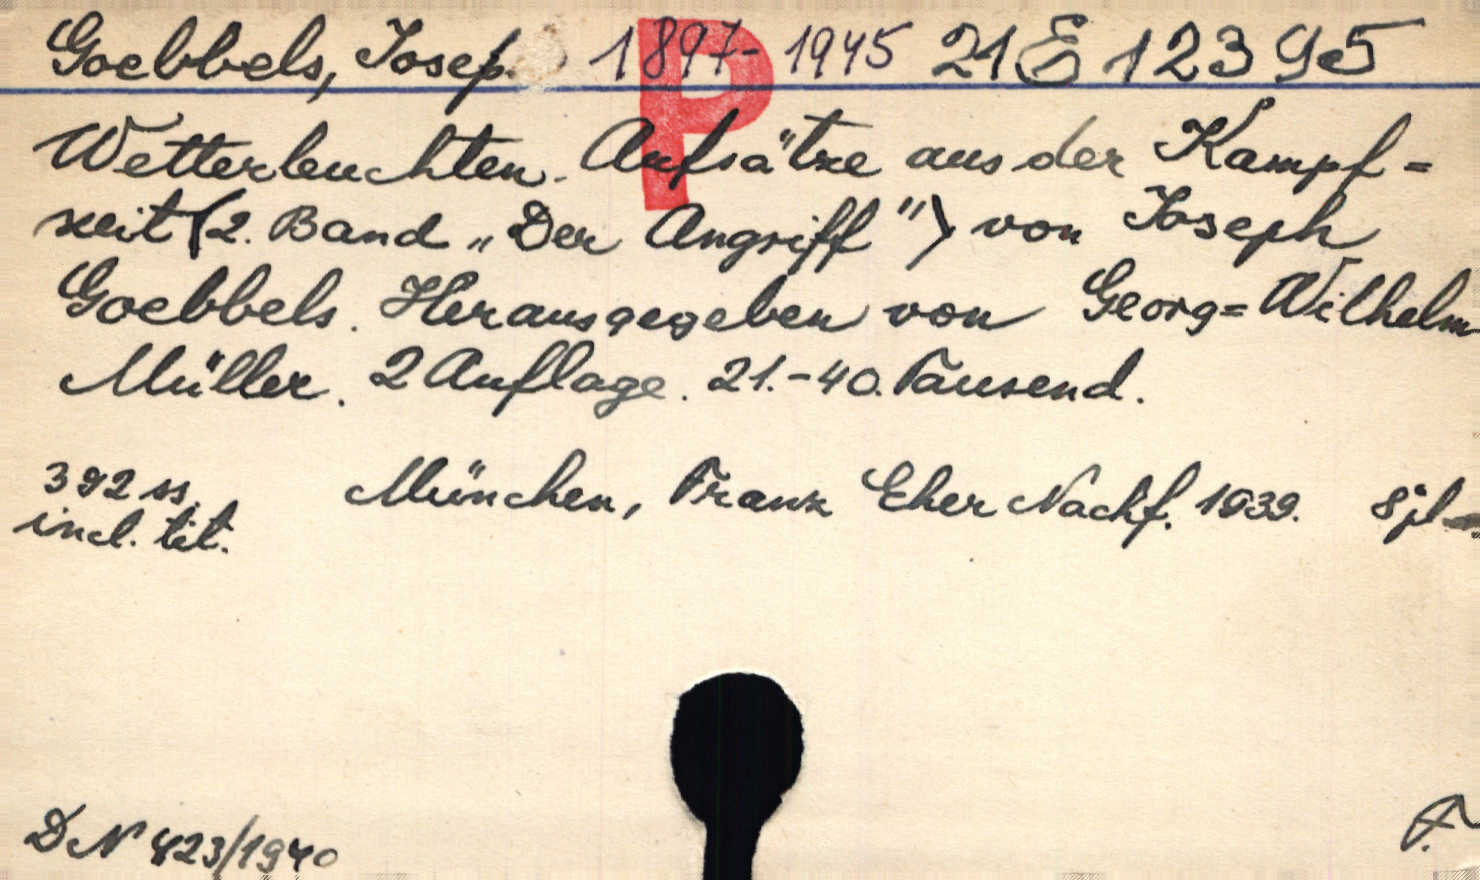 Goebbels, Josep. 1897-1945 21 E 123 95
P
Wetterleuchten. Aufsätze aus der Kampf=
zeit (2. Band „Der Angriff") von Joseph
Goebbels. Herausgegeben von Georg=Wilhelm
Müller. 2 Auflage. 21.-40. Tausend.
392 ss. München, Franz Eher Nachf. 1939. 8°
incl. tit.
DN 423/1940